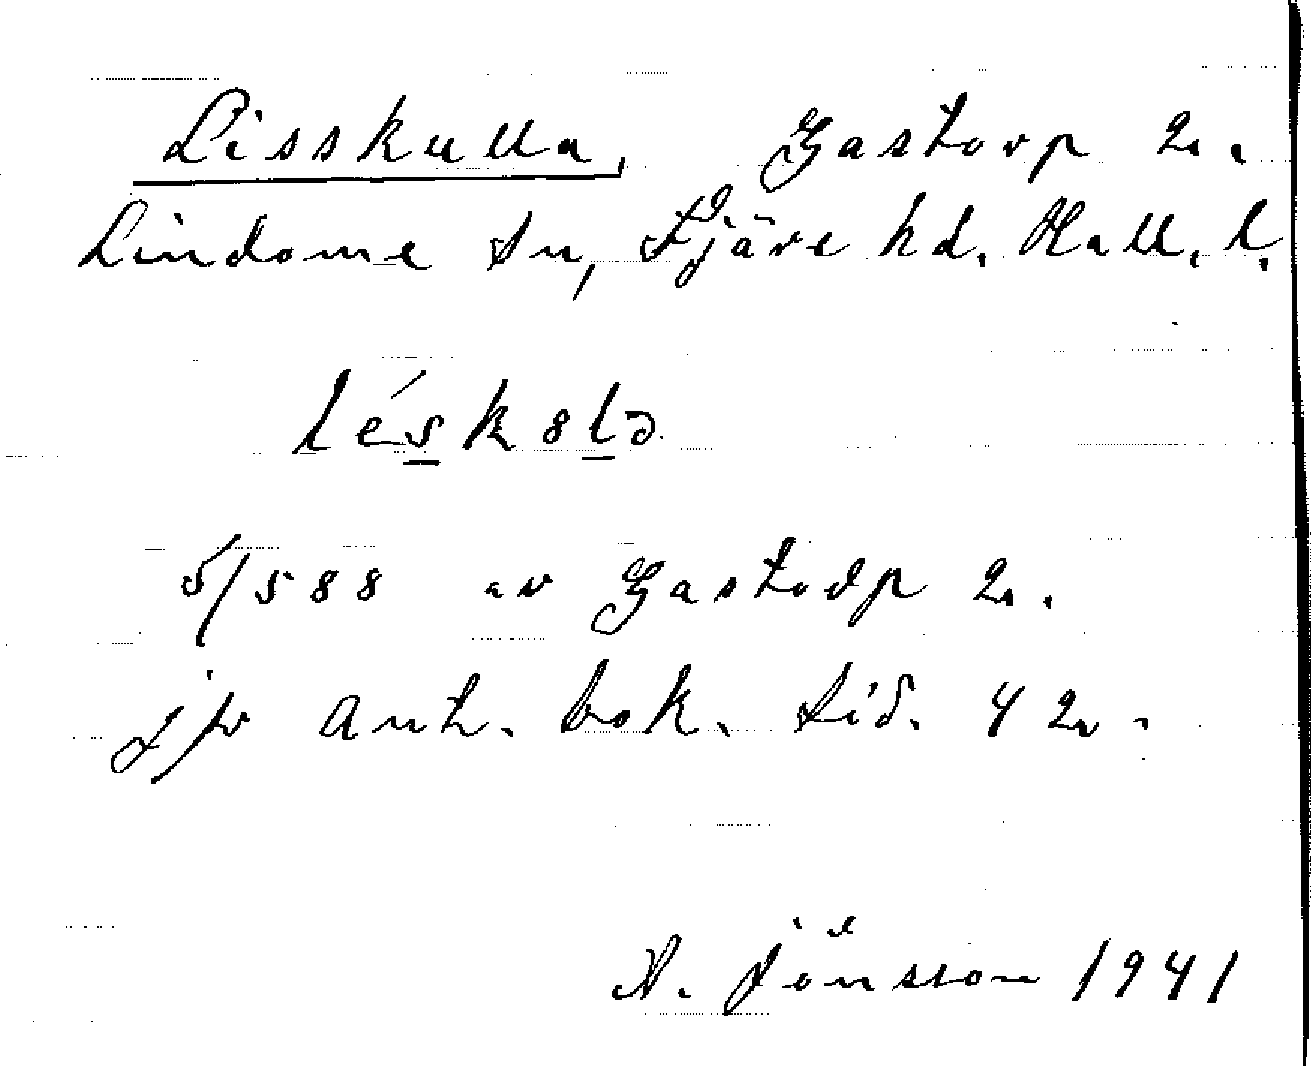 Lisskulla, Gastorp 2.
Lindome sn, Fjäre hd. Hall. l.
léskolə
5/588 av Gastorp 2.
jfr ant. bok. sid. 42.
A. Jönsson 1941